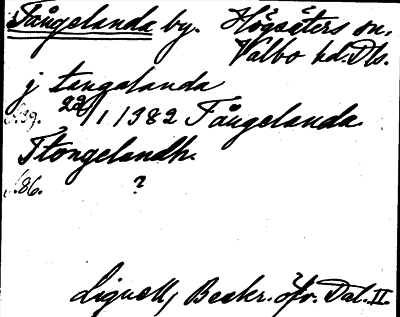 Fångelanda by. Högsäters sn.
Valbo hd. Dls.
j tangalanda
s.39. 22/1 1382 Fångelanda
Ttongelandh.
s.86. ?
Lignell, Beskr. öfv. Dal. II.